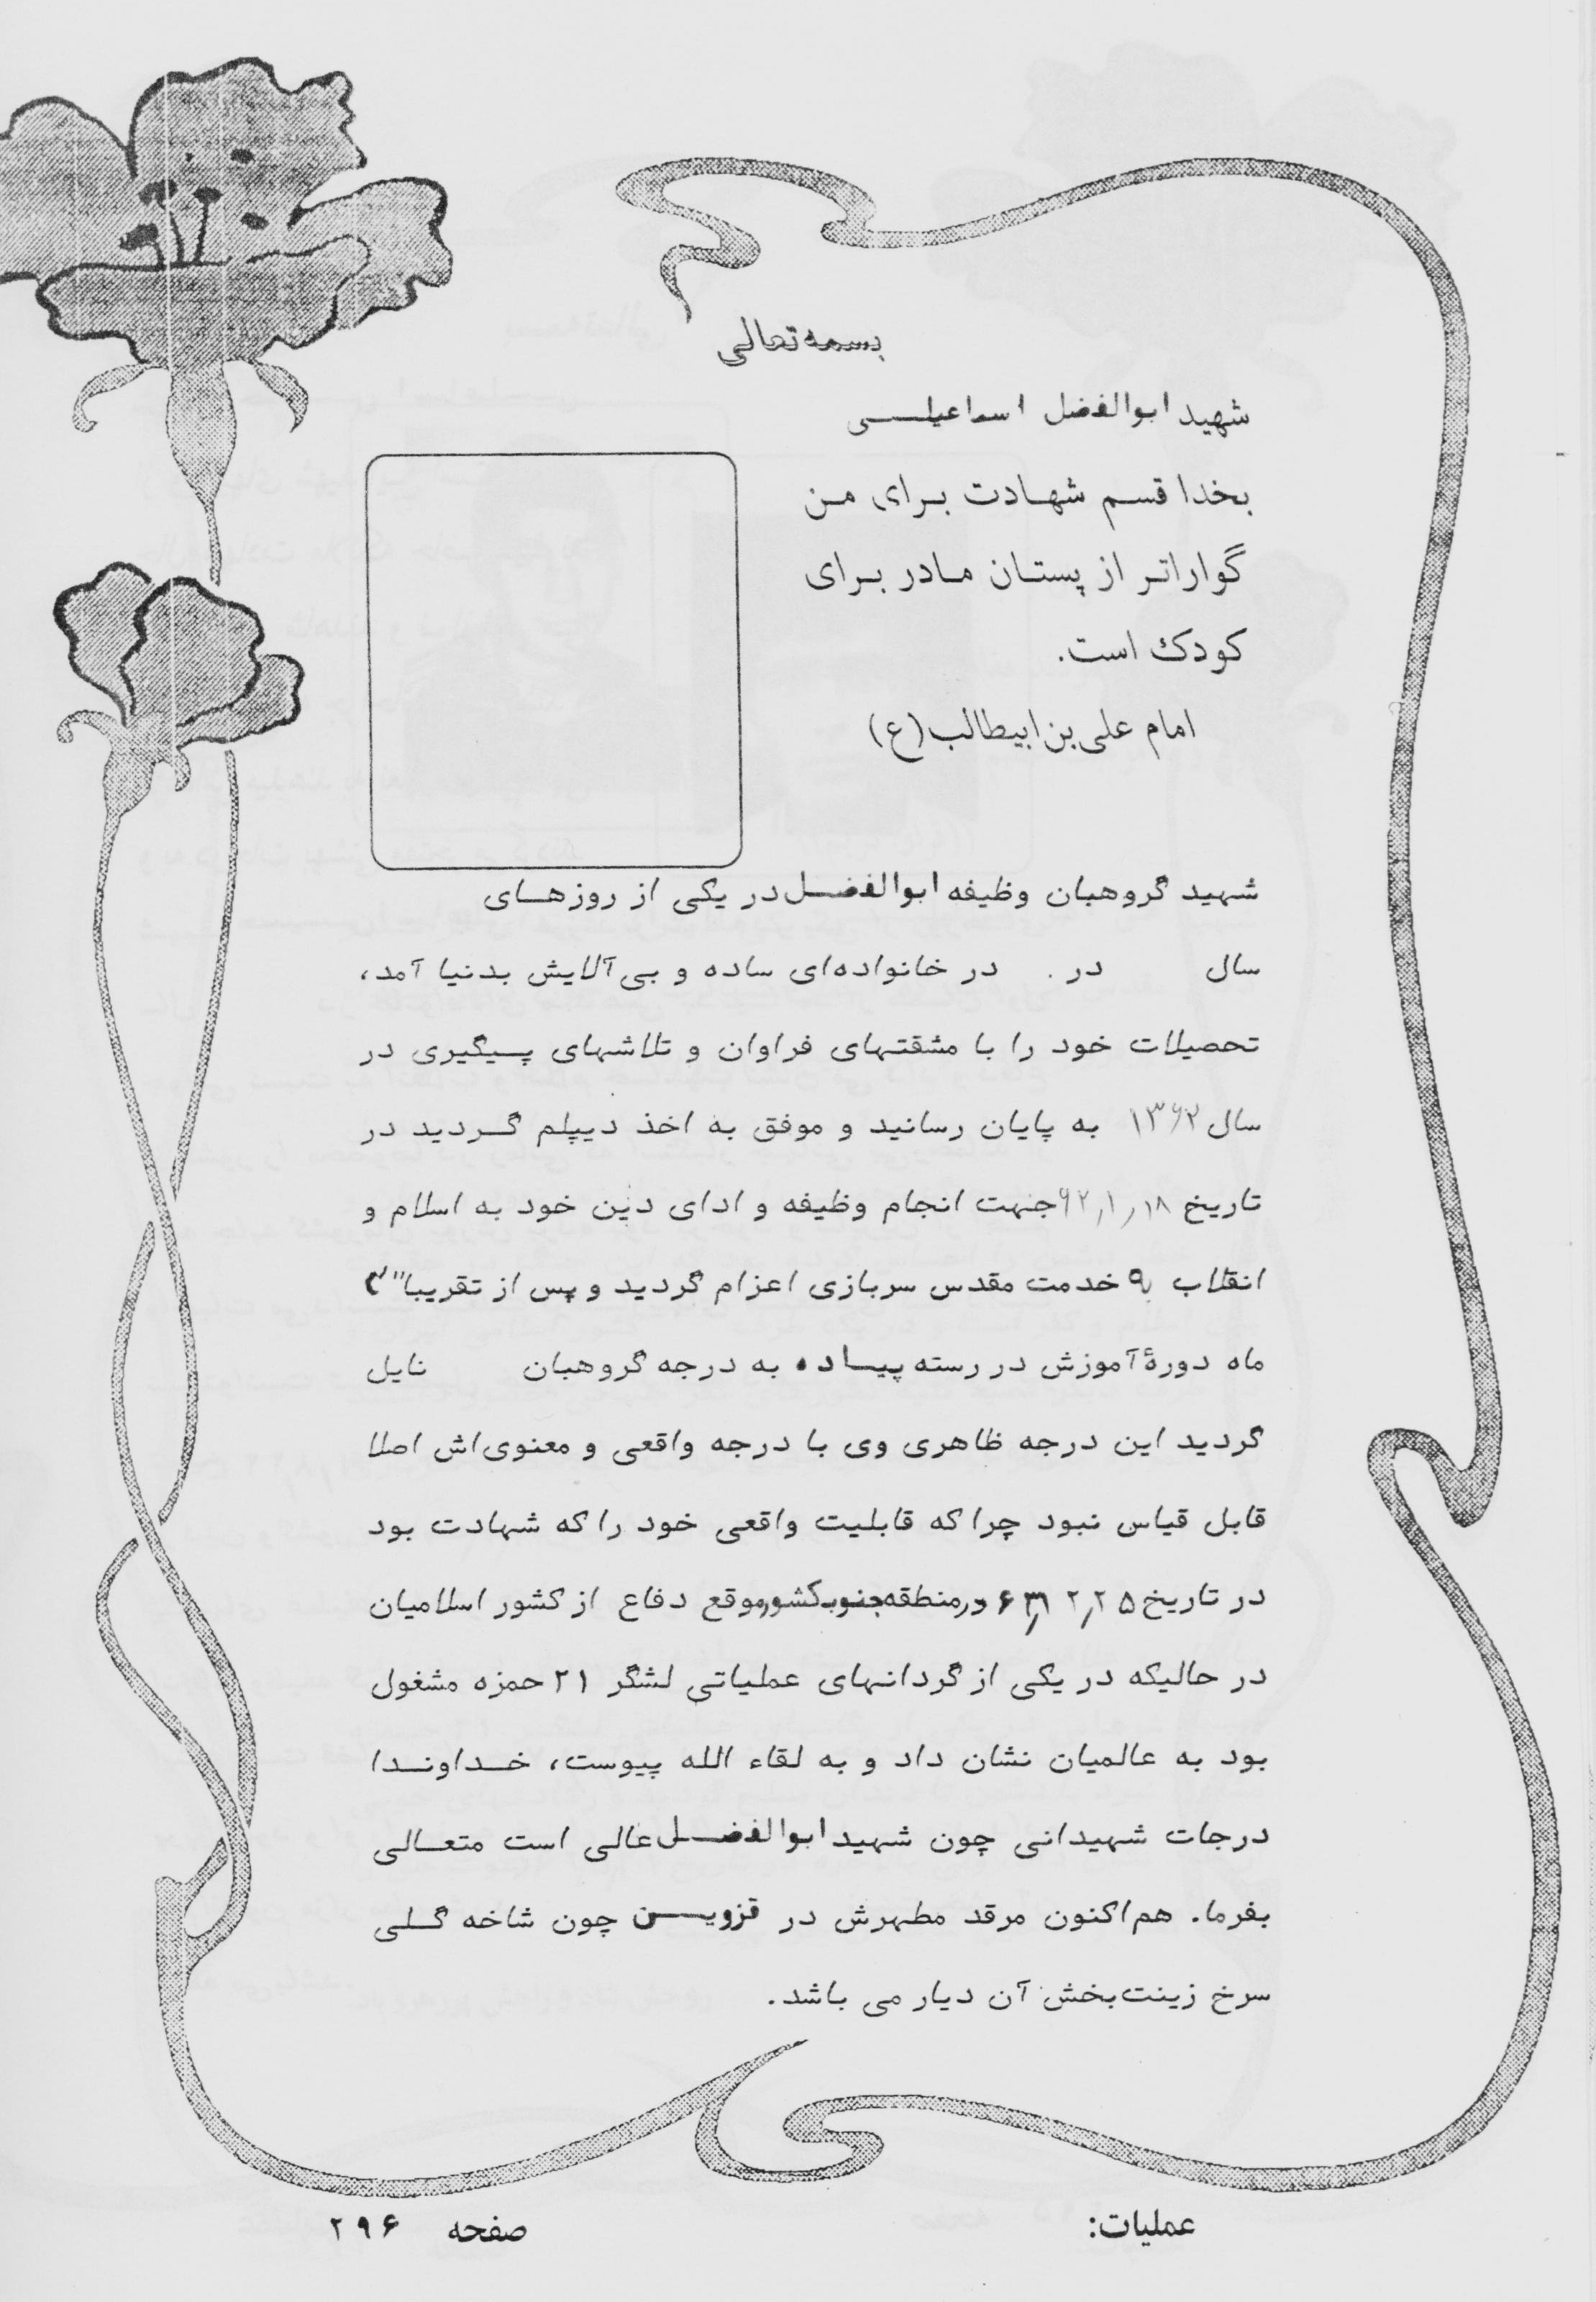 بسمه تعالی
شهید ابوالفضل اسماعیلی
بخدا قسم شهادت برای من
گواراتر از پستان مادر برای
کودک است.
امام علی بن ابیطالب (ع)
شهید گروهبان وظیفه ابوالفضل در یکی از روزهای
سال در . در خانواده‌ای ساده و بی‌آلایش بدنیا آمد،
تحصیلات خود را با مشقتهای فراوان و تلاشهای پیگیری در
سال ۱۳۶۲ به پایان رسانید و موفق به اخذ دیپلم گردید در
تاریخ ۶۲٫۱٫۱۸ جهت انجام وظیفه و ادای دین خود به اسلام و
انقلاب به خدمت مقدس سربازی اعزام گردید و پس از تقریبا" ۳
ماه دورهٔ آموزش در رسته پیاده به درجه گروهبان نایل
گردید این درجه ظاهری وی با درجه واقعی و معنوی‌اش اصلا
قابل قیاس نبود چرا که قابلیت واقعی خود را که شهادت بود
در تاریخ در منطقه جنوب کشور موقع دفاع از کشور اسلامیان
در حالیکه در یکی از گردانهای عملیاتی لشگر ۲۱ حمزه مشغول
بود به عالمیان نشان داد و به لقاء الله پیوست، خداوندا
درجات شهیدانی چون شهید ابوالفضل عالی است متعالی
بفرما. هم‌اکنون مرقد مطهرش در قزوین چون شاخه گلی
سرخ زینت‌بخش آن دیار می باشد.
عملیات: صفحه ۲۹۶